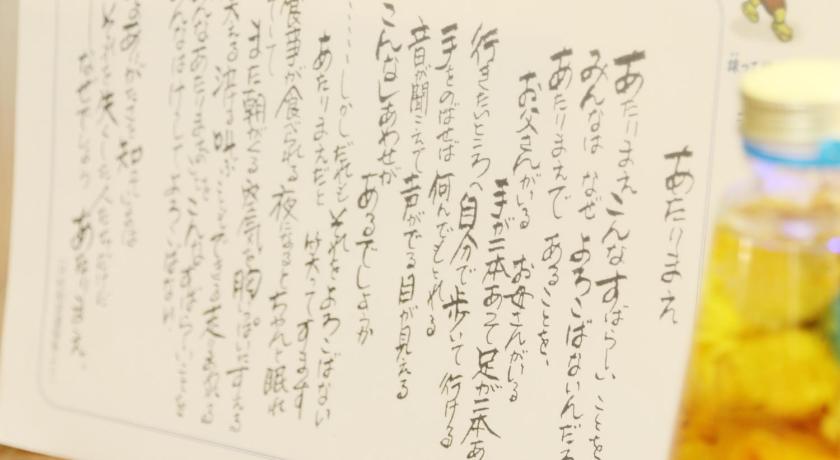 あたりまえ
あたりまえ こんなすばらしいことを
みんなは なぜ よろこばないんだろ
あたりまえで あることを、
お父さんがいる お母さんがいる
手が二本あって 足が二本あ
行きたいところへ自分で歩いて 行ける
手をのばせば 何んでもとれる
音が聞こえて 声がでる 目が見える
こんなしあわせが
あるでしょうか
……しかしだれもそれをよろこばない
あたりまえだと 笑ってすます
食事が食べられる 夜になるとちゃんと眠れ
また朝がくる 空気を胸いっぱいにすえる
笑える 泣ける 叫ぶこともできる 走りまわれる
みんなあたりまえのこと こんなすばらしいことを
みんなはけっして よろこばない
そのありがたさを知っているのは
それを失くした人たちだけ
なぜでしょう あたりまえ